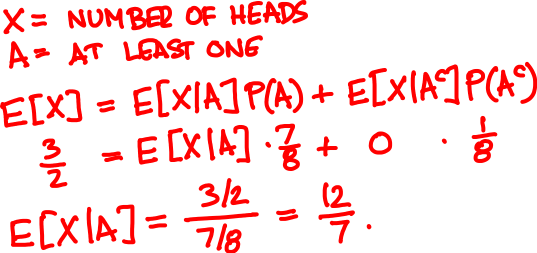 X = NUMBER OF HEADS
A = AT LEAST ONE
E[X] = E[X|A]P(A) + E[X|Aᶜ]P(Aᶜ)
3/2 = E[X|A] · 7/8 + 0 · 1/8
E[X|A] = (3/2)/(7/8) = 12/7.